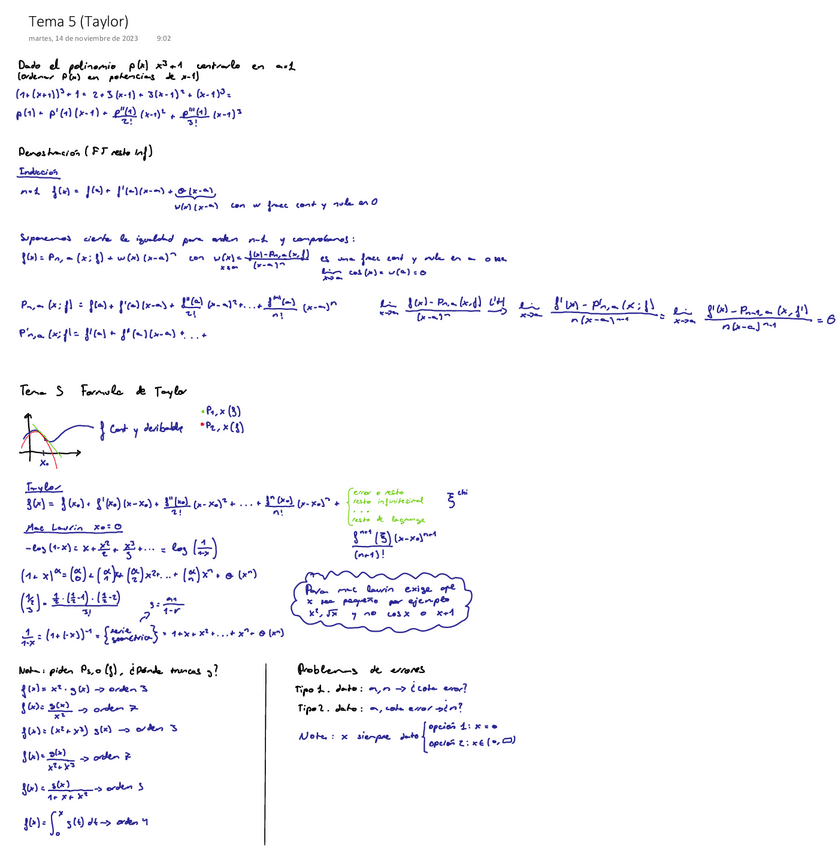 Tema 5 (Taylor)
martes, 14 de noviembre de 2023 9:02
Dado el polinomio p(x) x³+1 centrarlo en a=1
(ordenar p(x) en potencias de x-1)
(1+(x+1))³+1 = 2+3(x-1)+3(x-1)²+(x-1)³=
p(1) + p'(1)(x-1) + p''(1)/2! (x-1)² + p'''(1)/3! (x-1)³
Demostración (FT resto inf)
Inducción
n=1 f(x) = f(a) + f'(a)(x-a) + θ(x-a)
w(x)(x-a) con w func cont y nula en 0
Suponemos cierta la igualdad para orden n-1 y comprobamos:
f(x) = Pn,a(x;f) + w(x)(x-a)ⁿ con w(x) = f(x)-Pn,a(x,f)/(x-a)ⁿ es una func cont y nula en a o sea
x→a
lim x→a cos(x) = w(a) = 0
Pn,a(x;f) = f(a) + f'(a)(x-a) + f''(a)/2! (x-a)² + ... + fⁿ(a)/n! (x-a)ⁿ
lim x→a f(x)-Pn,a(x,f)/(x-a)ⁿ L'H→ lim x→a f'(x)-P'n,a(x;f)/n(x-a)ⁿ⁻¹ = lim x→a f'(x)-Pn-1,a(x,f')/n(x-a)ⁿ⁻¹ = 0
P'n,a(x;f) = f'(a) + f''(a)(x-a) + ... +
Tema 5 Formula de Taylor
f Cont y derivable
P1,x(f)
P2,x(f)
x₀
Taylor
f(x) = f(x₀) + f'(x₀)(x-x₀) + f''(x₀)/2! (x-x₀)² + ... + fⁿ(x₀)/n! (x-x₀)ⁿ +
error o resto
resto infinitesimal
...
resto de lagrange
fⁿ⁺¹(ξ)/(n+1)! (x-x₀)ⁿ⁺¹
ξ chi
Mac Laurin x₀=0
-log(1-x) = x + x²/2 + x³/3 + ... = log(1/1-x)
(1+x)^α = (α 0) + (α 1)x + (α 2)x² + ... + (α n)xⁿ + θ(xⁿ)
(½ 3) = ½·(½-1)·(½-2)/3!
S = a₁/1-r
1/1-x = (1+(-x))⁻¹ = {serie geométrica} = 1+x+x²+...+xⁿ+θ(xⁿ)
Para mac laurin exige que
x sea pequeño por ejemplo
x², √x y no cosx o x+1
Nota: piden P5,0(f), ¿Dónde truncas g?
f(x) = x²·g(x) → orden 3
f(x) = g(x)/x² → orden 7
f(x) = (x²+x³) g(x) → orden 3
f(x) = g(x)/x²+x³ → orden 7
f(x) = g(x)/1+x+x² → orden 5
f(x) = ∫₀ˣ g(t) dt → orden 4
Problemas de errores
Tipo 1. dato: a,n → ¿cota error?
Tipo 2. dato: a, cota error → ¿n?
Nota: x siempre dato
opción 1: x=□
opción 2: x∈(□,□)